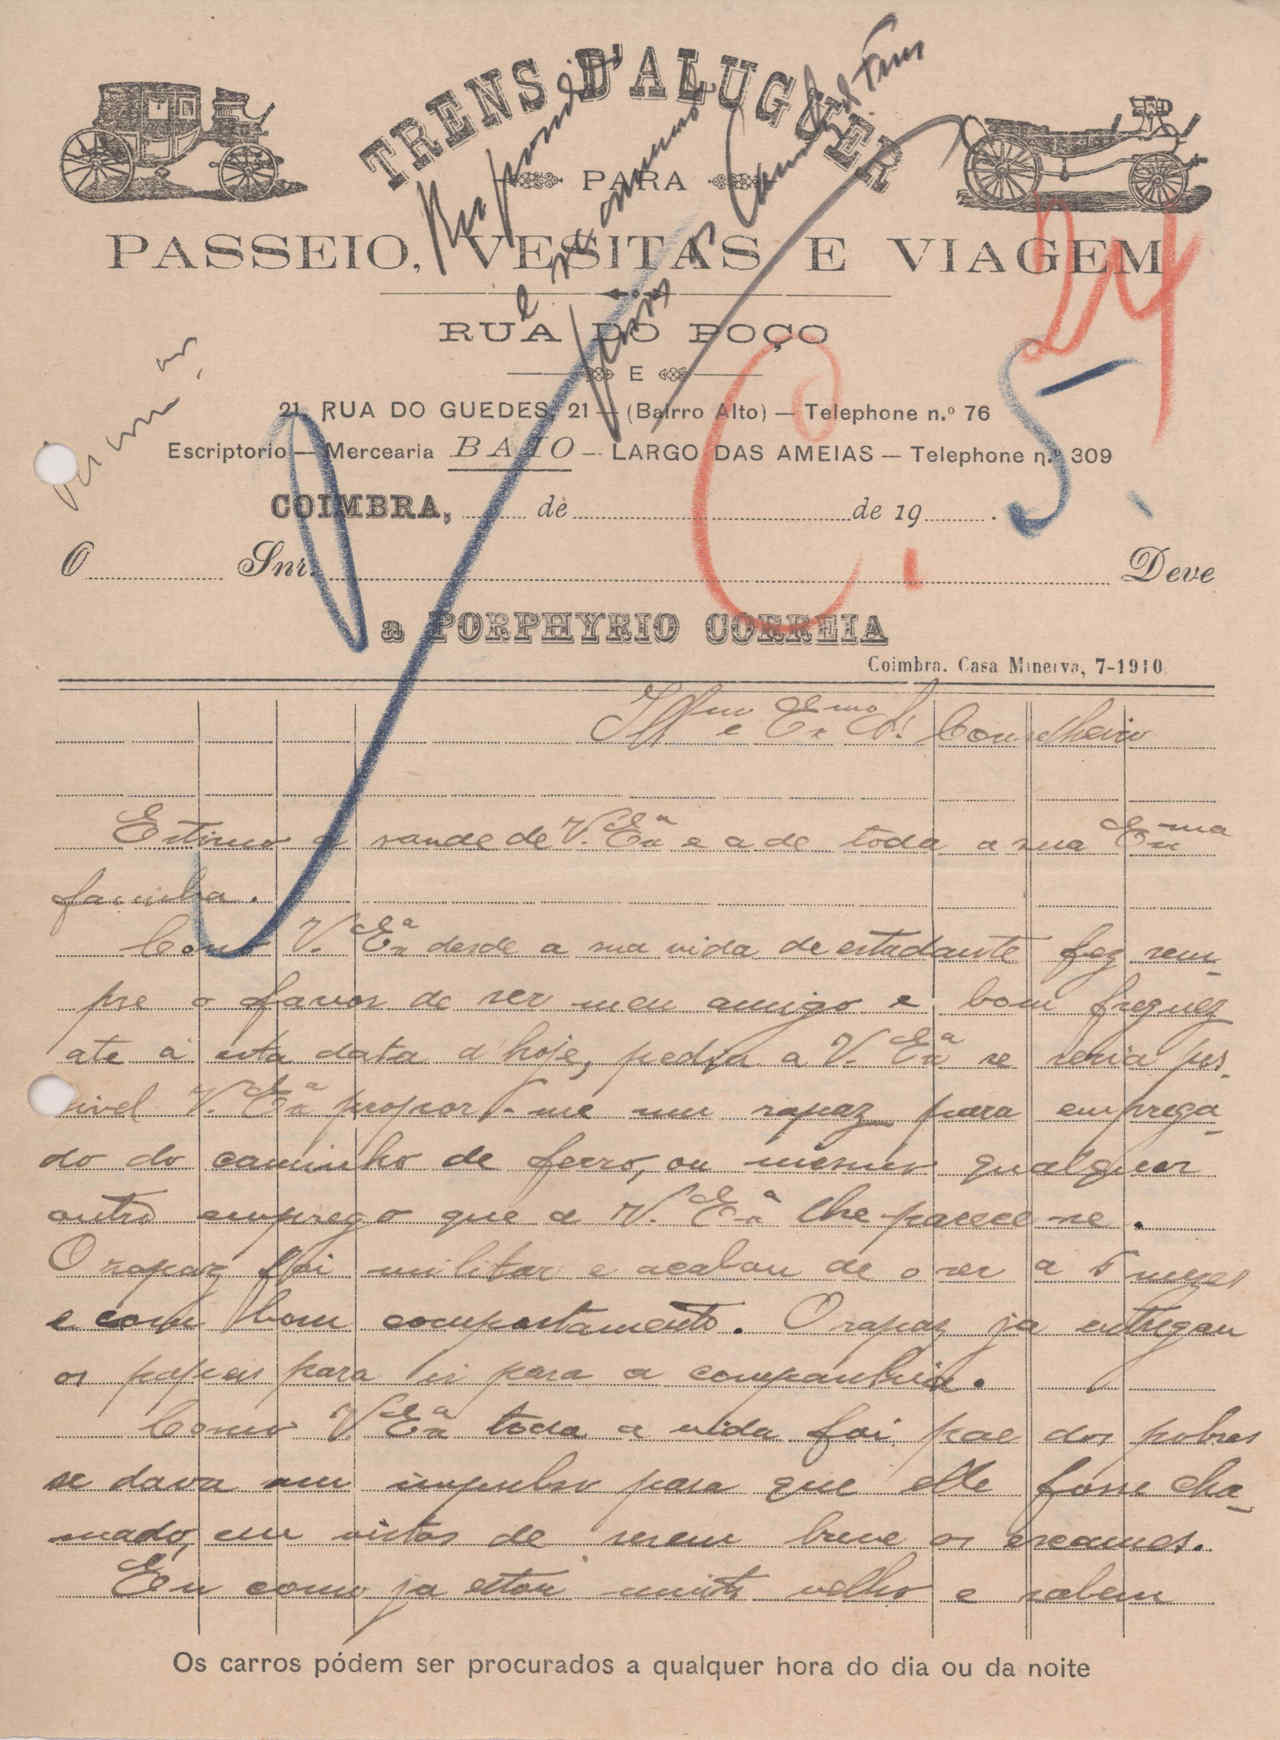 TRENS D'ALUGUER
PARA
PASSEIO, VESITAS E VIAGEM
RUA DO POÇO
E
21, RUA DO GUEDES, 21 — (Bairro Alto) — Telephone n.º 76
Escriptorio — Mercearia BAIO — LARGO DAS AMEIAS — Telephone n.º 309
COIMBRA, de de 19 .
O Snr. Deve
a PORPHYRIO CORREIA
Coimbra. Casa Minerva, 7-1910
Respondi
e recommendo
C. 5.
Illmo e Exmo Sr. Conselheiro
Estimo a saude de V. Exa e a de toda a sua Exma
familia.
Como V. Exa desde a sua vida de estudante fez sem-
pre o favor de ser meu amigo e bom freguez
ate á esta data d hoje, pedia a V. Exa se seria pos-
sivel V. Exa propor-me um rapaz para emprega-
do do caminho de ferro, ou mesmo qualquer
outro emprego que a V. Exa lhe parece-se.
O rapaz foi militar e acabou de o ser a 5 mezes
e com bom comportamento. O rapaz ja entregou
os papeis para ir para a companhia.
Como V. Exa toda a vida foi pae dos pobres
se dava um impulso para que elle fosse cha-
mado, em vistas de serem breve os exames.
Eu como ja estou muito velho e sabem
Os carros pódem ser procurados a qualquer hora do dia ou da noite